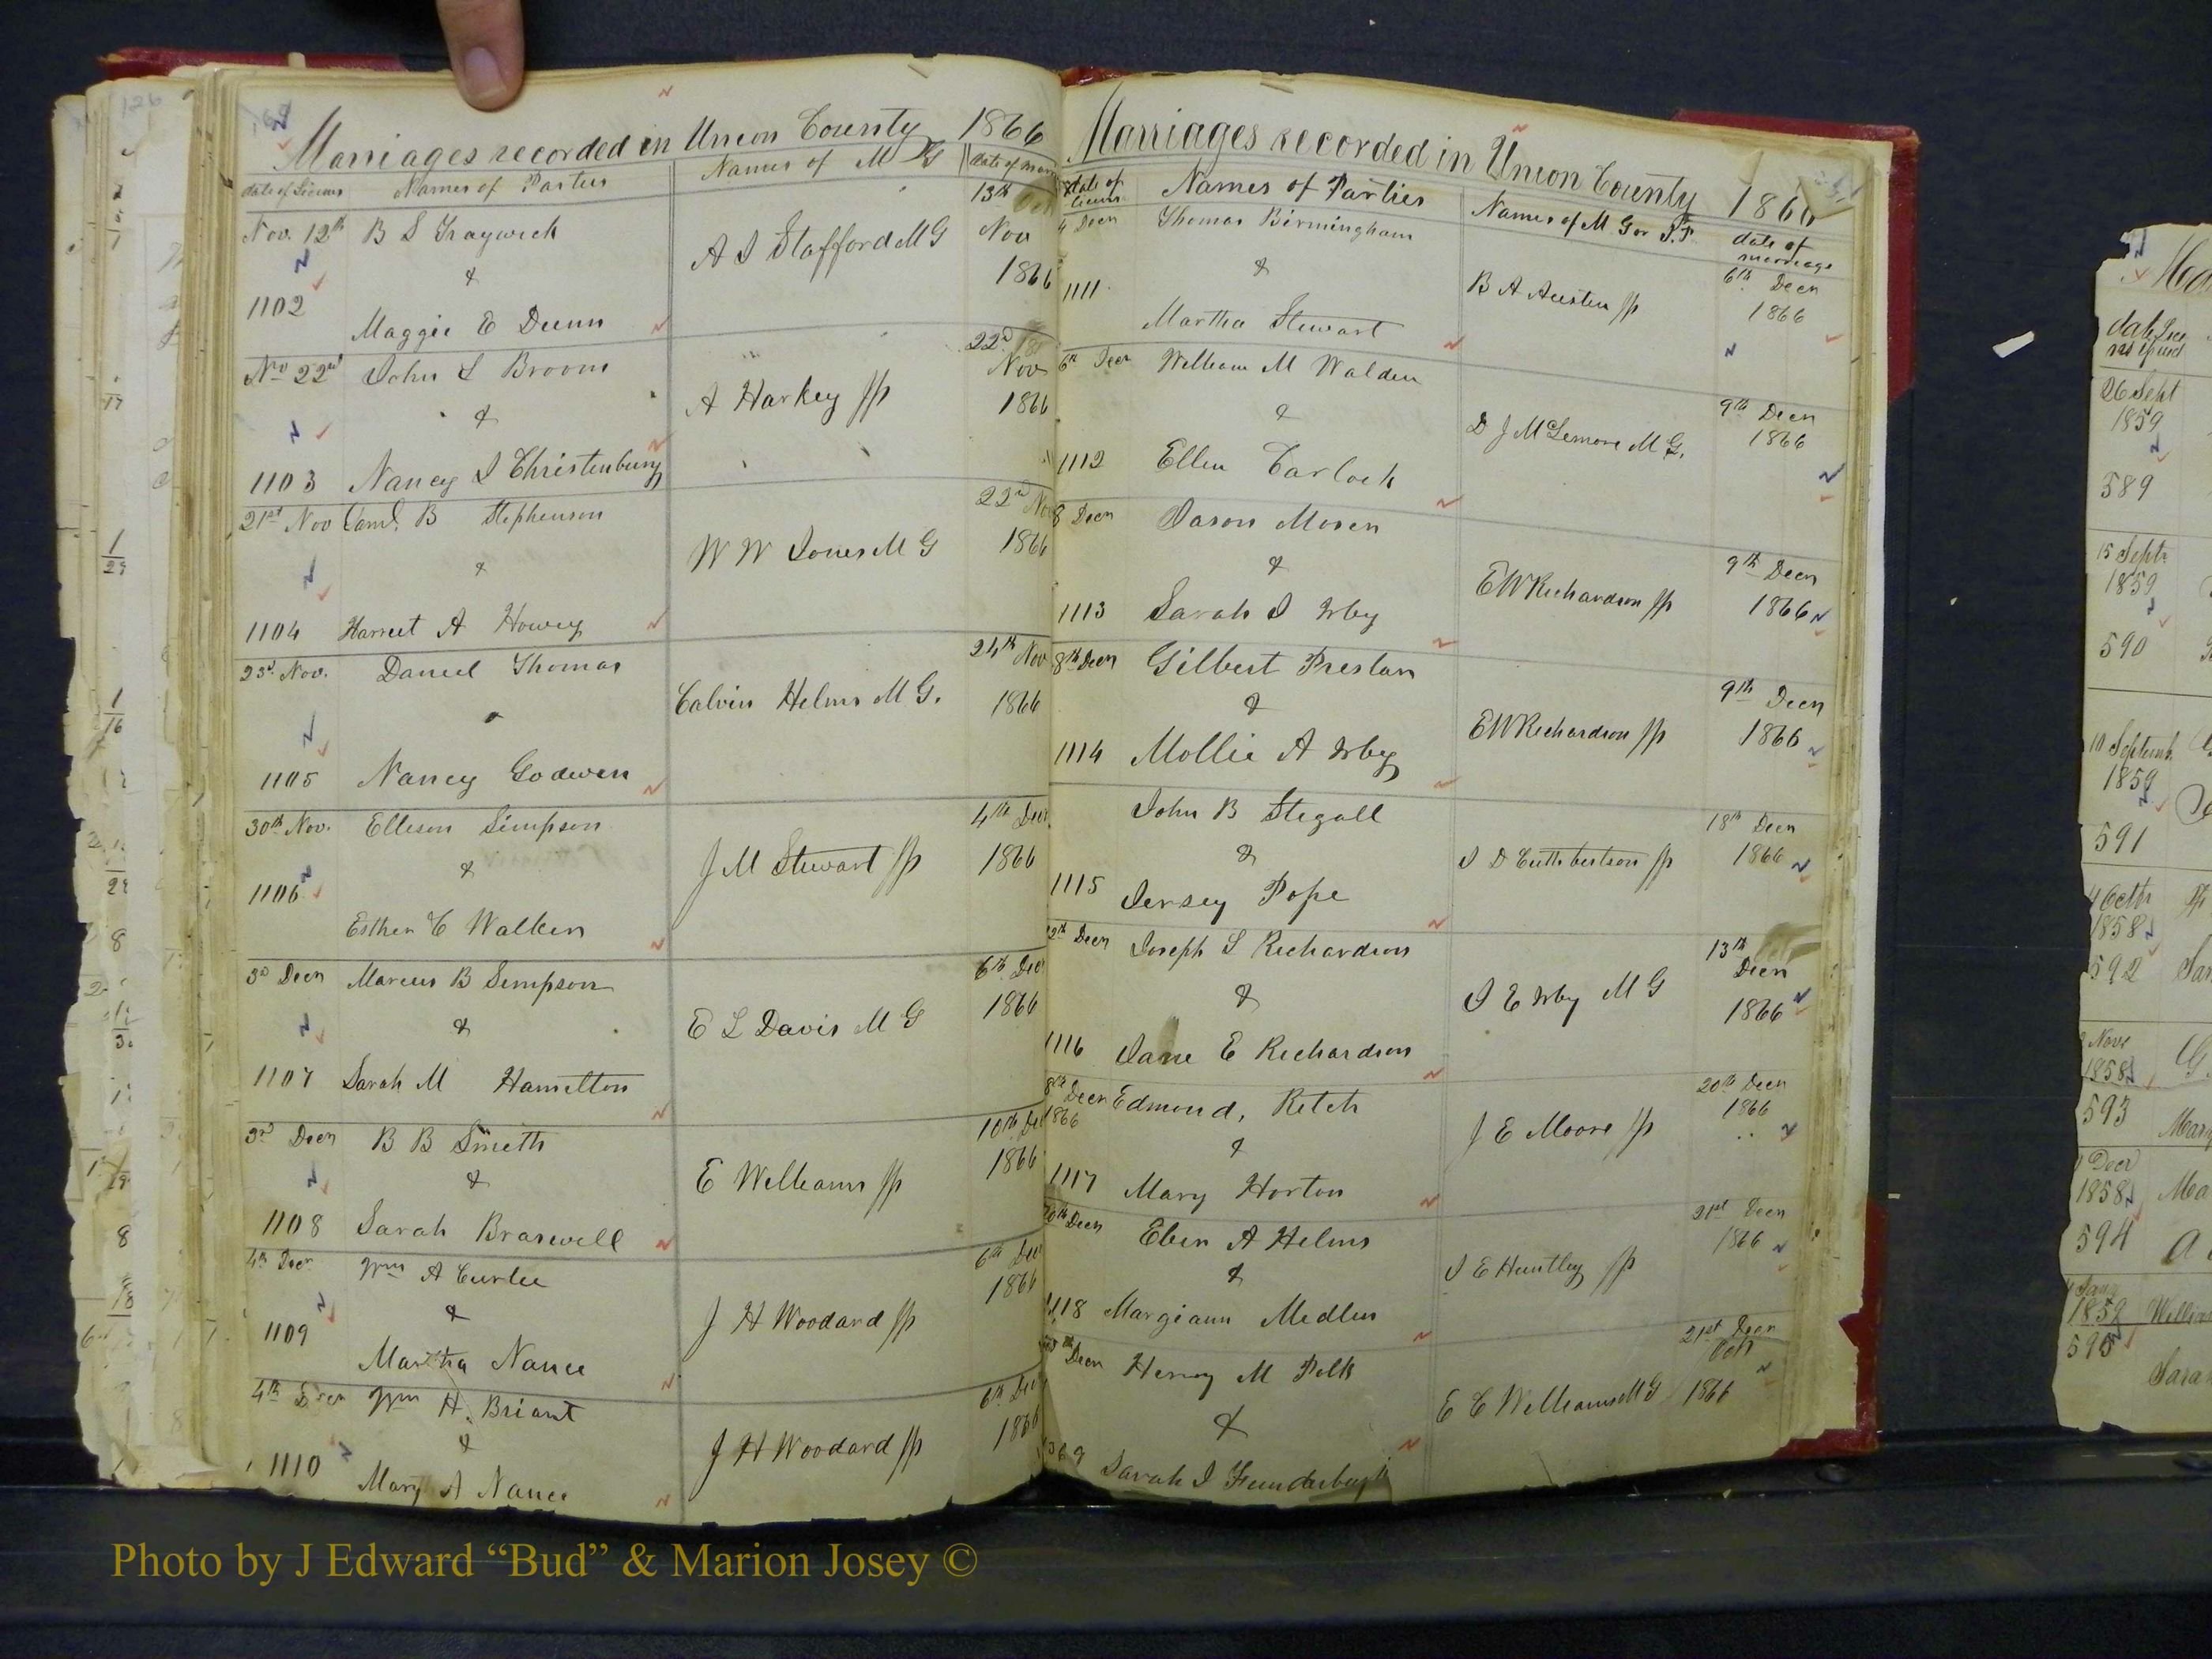 Marriages recorded in Union County 1866
date of Licens Names of Parties Names of M G date of marr
Nov. 12th B S Graywich A J Stafford M G 13th Nov 1866
&
1102 Maggie E Dunn
No 22nd John L Broom A Harkey J P 22d Nov 1866
&
1103 Nancy J Christenbury
21st Nov Saml. B Stephenson W W Jones M G 22nd Nov 1866
&
1104 Harriet A Howey
23d Nov. Daniel Thomas Calvin Helms M G. 24th Nov 1866
1105 Nancy Godwin
30th Nov. Ellison Simpson J M Stewart J P 4th Decr 1866
&
1106 Esther C Walken
3d Decr Marcus B Simpson E L Davis M G 6th Dec 1866
&
1107 Sarah M Hamilton
3rd Decr B B Smith E Williams J P 10th Dec 1866
&
1108 Sarah Braswell
4th Decr Wm A Curlee J H Woodard J P 6th Dec 1866
&
1109 Martha Nance
4th Decr Wm H. Briant J H Woodard J P 6th Dec 1866
&
1110 Mary A Nance
Marriages recorded in Union County 1866
date of Licens Names of Parties Names of M. G or J. P. date of marriage
4 Decr Thomas Birmingham B A Austin J P 6th Decr 1866
&
1111 Martha Stewart
6th Decr William M Walden D J McLemore M G. 9th Decr 1866
&
1112 Ellen Carlock
8 Decr Jason Moser E W Richardson J P 9th Decr 1866
&
1113 Sarah J Irby
8th Decr Gilbert Preslar E W Richardson J P 9th Decr 1866
&
1114 Mollie A Irby
John B Stegall J D Cuthbertson J P 18th Decr 1866
&
1115 Jersey Pope
12th Decr Joseph S Richardson J E Irby M G 13th Decr 1866
&
1116 Jane E Richardson
8th Decr 1866 Edmond, Retch J E Moore J P 20th Decr 1866
&
1117 Mary Horton
20th Decr Eben A Helms J E Huntley J P 21st Decr 1866
&
1118 Margiann Medlin
Decr Henry M Polk E C Williams M G 21st Decr 1866
&
Sarah J Funderburk
126
589
26 Sept
1859
15 Septr
1859
590
10 Septemb.
1859
591
4 Octr
1858
592 Sar
Novr
1858
593 Mary
Decr
1858 Ma
594
Jany
1859 William
595
Sara
Photo by J Edward “Bud” & Marion Josey ©